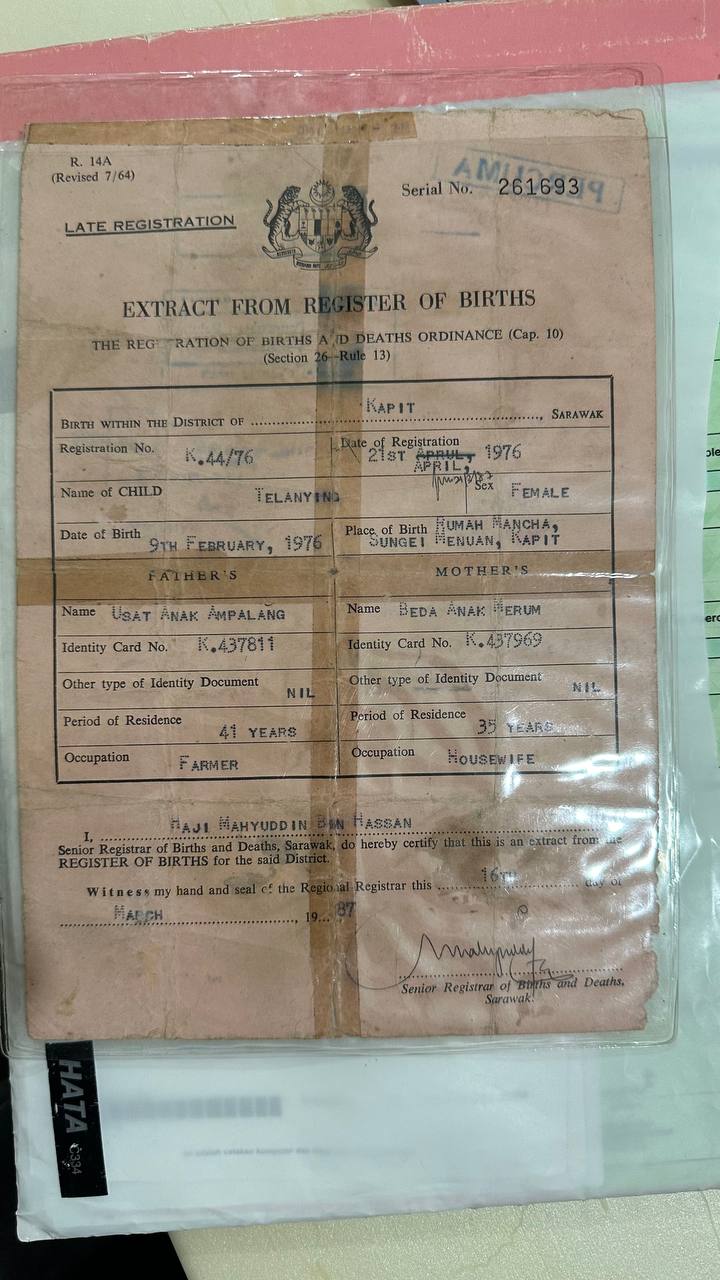 R. 14A
(Revised 7/64)
PERCUMA
Serial No. 261693
LATE REGISTRATION
EXTRACT FROM REGISTER OF BIRTHS
THE REG RATION OF BIRTHS A ID DEATHS ORDINANCE (Cap. 10)
(Section 26—Rule 13)
BIRTH WITHIN THE DISTRICT OF KAPIT, SARAWAK
Registration No. K.44/76
Date of Registration 21ST APRUL, 1976
APRIL,
Name of CHILD TELANYING
Sex FEMALE
Date of Birth 9TH FEBRUARY, 1976
Place of Birth RUMAH MANCHA,
SUNGEI MENUAN, KAPIT
FATHER'S MOTHER'S
Name USAT ANAK AMPALANG
Name BEDA ANAK MERUM
Identity Card No. K.437811
Identity Card No. K.437969
Other type of Identity Document NIL
Other type of Identity Document NIL
Period of Residence 41 YEARS
Period of Residence 35 YEARS
Occupation FARMER
Occupation HOUSEWIFE
I, HAJI MAHYUDDIN BIN HASSAN
Senior Registrar of Births and Deaths, Sarawak, do hereby certify that this is an extract from the
REGISTER OF BIRTHS for the said District.
Witness my hand and seal of the Regional Registrar this 16TH day of
MARCH, 19...87
Senior Registrar of Births and Deaths,
Sarawak.
HATA
C334